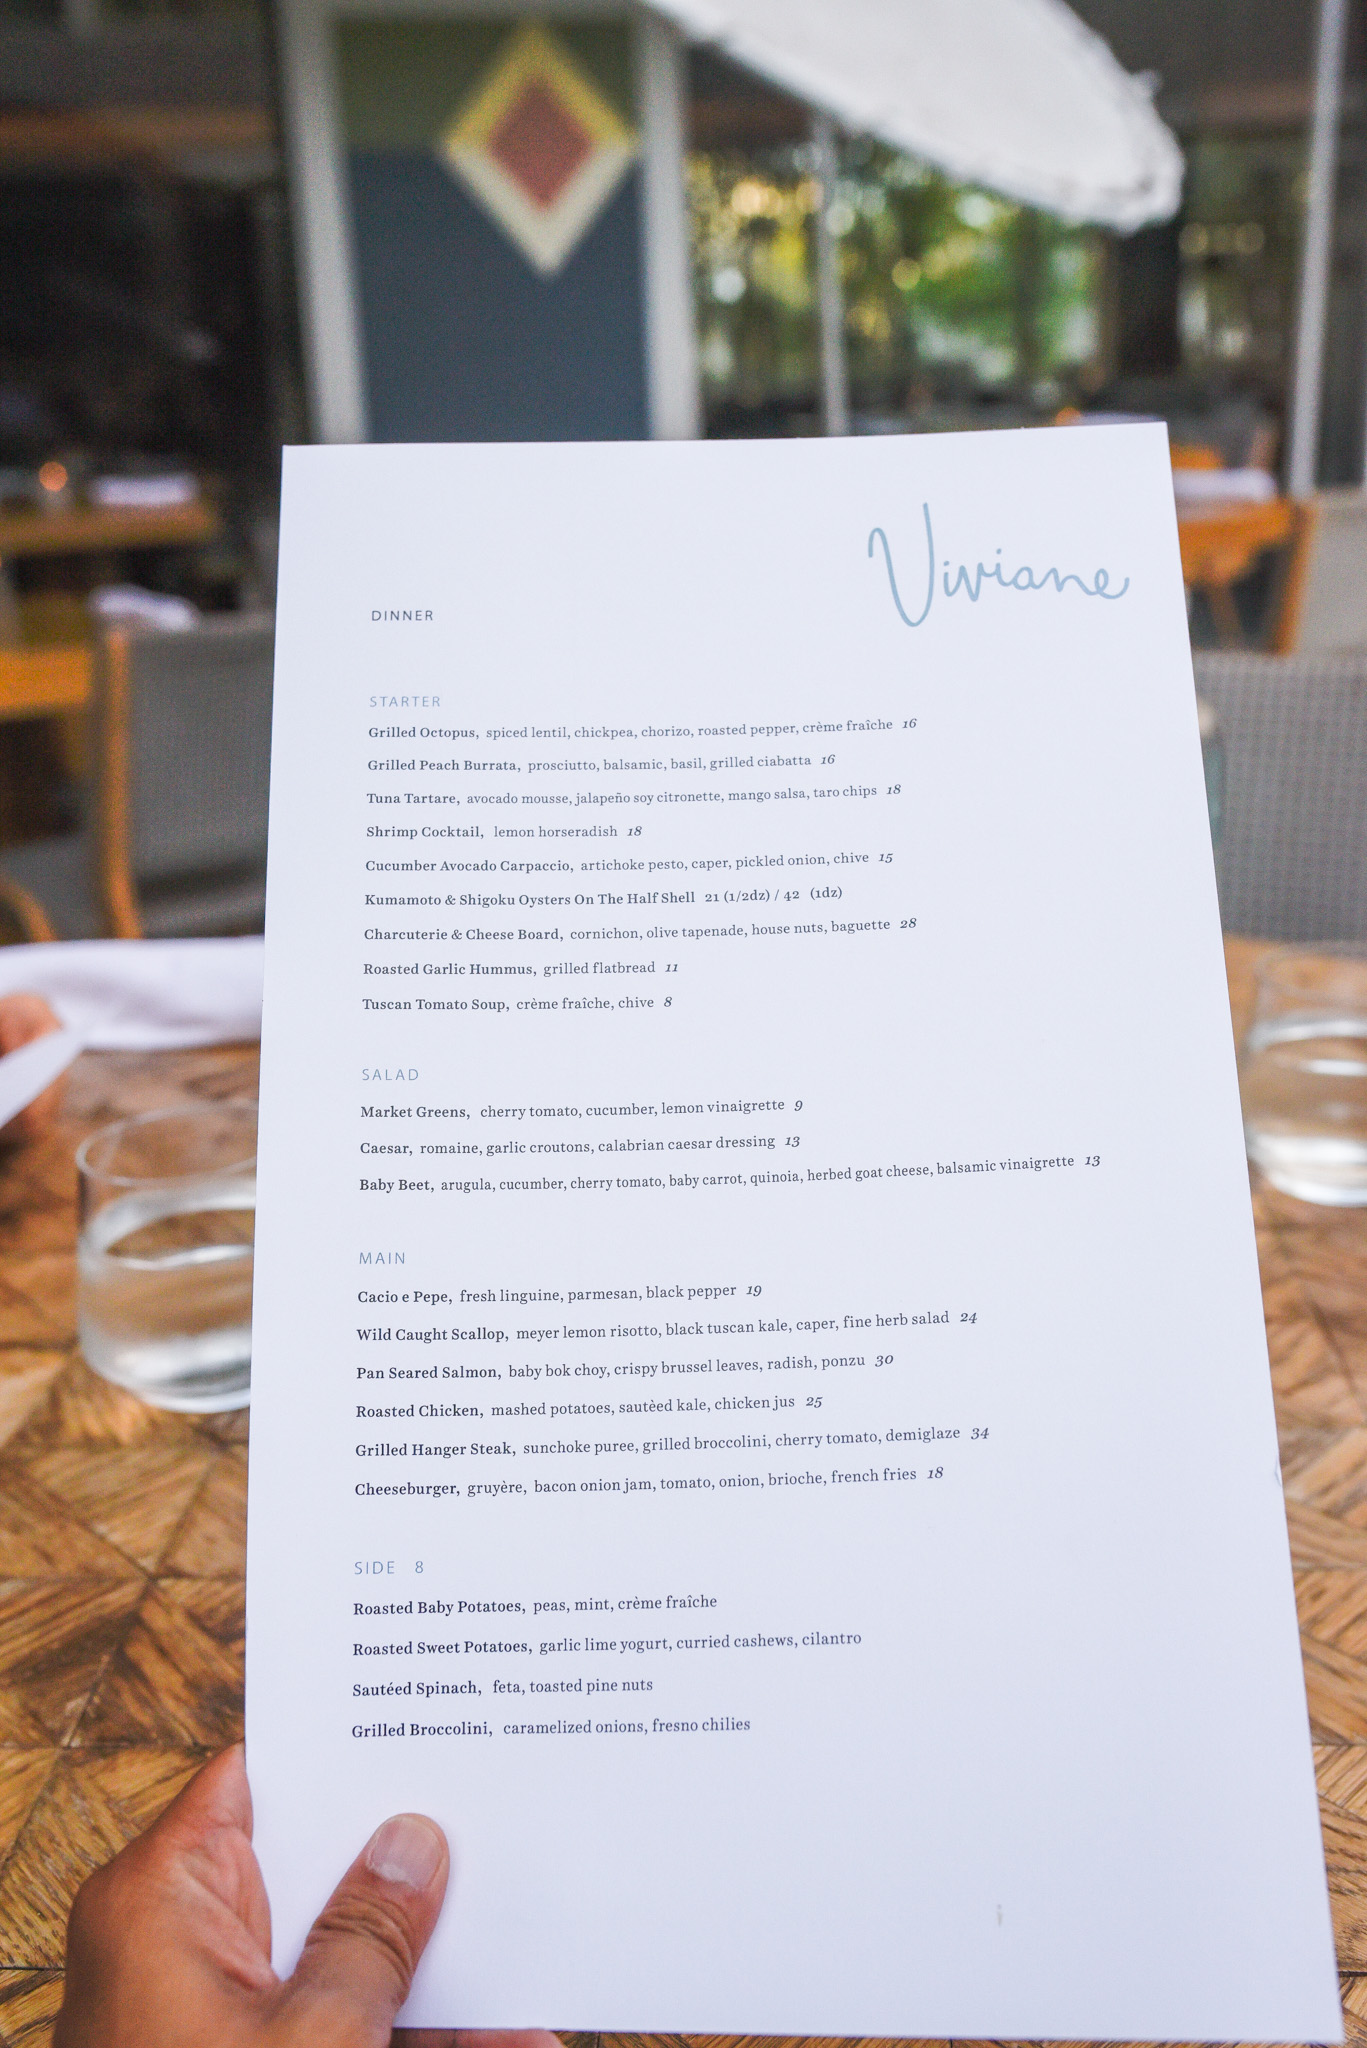 Viviane
DINNER
STARTER
Grilled Octopus, spiced lentil, chickpea, chorizo, roasted pepper, crème fraîche 16
Grilled Peach Burrata, prosciutto, balsamic, basil, grilled ciabatta 16
Tuna Tartare, avocado mousse, jalapeño soy citronette, mango salsa, taro chips 18
Shrimp Cocktail, lemon horseradish 18
Cucumber Avocado Carpaccio, artichoke pesto, caper, pickled onion, chive 15
Kumamoto & Shigoku Oysters On The Half Shell 21 (1/2dz) / 42 (1dz)
Charcuterie & Cheese Board, cornichon, olive tapenade, house nuts, baguette 28
Roasted Garlic Hummus, grilled flatbread 11
Tuscan Tomato Soup, crème fraîche, chive 8
SALAD
Market Greens, cherry tomato, cucumber, lemon vinaigrette 9
Caesar, romaine, garlic croutons, calabrian caesar dressing 13
Baby Beet, arugula, cucumber, cherry tomato, baby carrot, quinoia, herbed goat cheese, balsamic vinaigrette 13
MAIN
Cacio e Pepe, fresh linguine, parmesan, black pepper 19
Wild Caught Scallop, meyer lemon risotto, black tuscan kale, caper, fine herb salad 24
Pan Seared Salmon, baby bok choy, crispy brussel leaves, radish, ponzu 30
Roasted Chicken, mashed potatoes, sautèed kale, chicken jus 25
Grilled Hanger Steak, sunchoke puree, grilled broccolini, cherry tomato, demiglaze 34
Cheeseburger, gruyère, bacon onion jam, tomato, onion, brioche, french fries 18
SIDE 8
Roasted Baby Potatoes, peas, mint, crème fraîche
Roasted Sweet Potatoes, garlic lime yogurt, curried cashews, cilantro
Sautéed Spinach, feta, toasted pine nuts
Grilled Broccolini, caramelized onions, fresno chilies